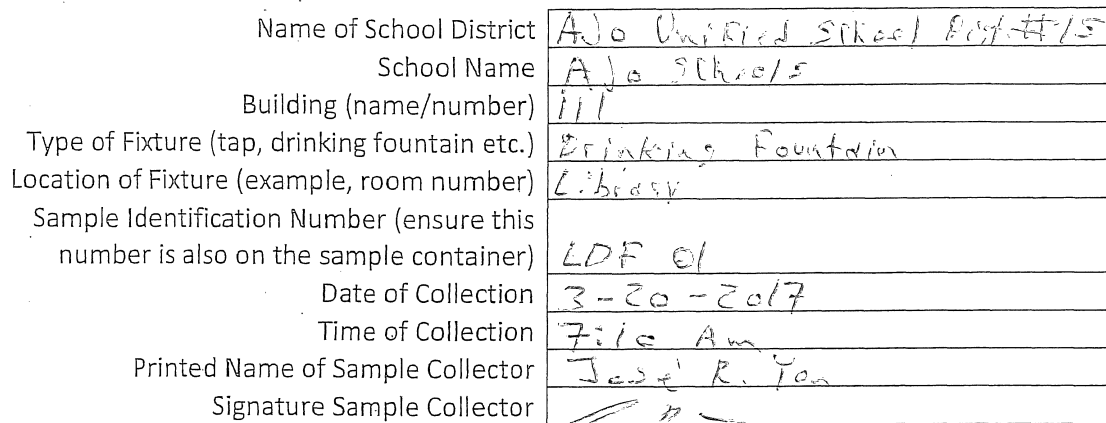 Name of School District AJo Unified School Dist #15
School Name AJo Schools
Building (name/number) 111
Type of Fixture (tap, drinking fountain etc.) Drinking Fountain
Location of Fixture (example, room number) Library
Sample Identification Number (ensure this
number is also on the sample container) LDF 01
Date of Collection 3-20-2017
Time of Collection 7:10 Am
Printed Name of Sample Collector José R.
Signature Sample Collector